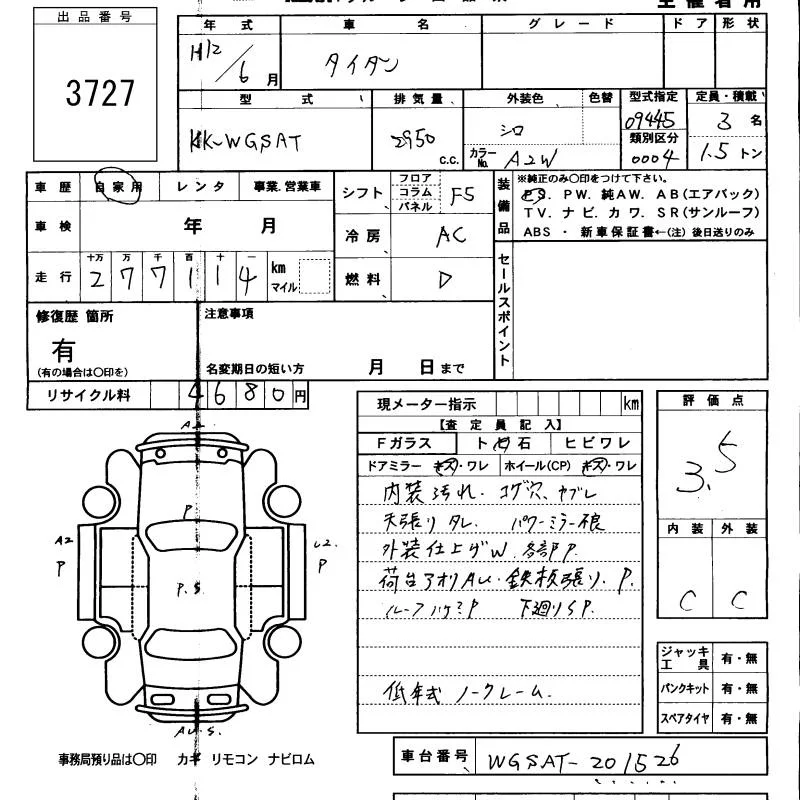 出品番号
3727
年式 車名 グレード ドア 形状
H12/6月 タイタン
型式 排気量 外装色 色替 型式指定 定員・積載
KK-WGSAT 2950 c.c. シロ 09445 3名
カラーNo. A2W 類別区分 0004 1.5トン
車歴 自家用 レンタ 事業.営業車
シフト フロア コラム パネル F5
装備品 ※純正のみ○印をつけて下さい。
PS. PW. 純AW. AB(エアバック)
TV. ナビ. カワ. SR(サンルーフ)
ABS ・ 新車保証書←(注) 後日送りのみ
車検 年 月
冷房 AC
走行 十万 万 千 百 十 一
277114 km マイル
燃料 D
セールスポイント
修復歴 箇所
有
(有の場合は○印を)
注意事項
名変期日の短い方 月 日まで
リサイクル料 4680円
現メーター指示 km
【査定員記入】
Fガラス ト 石 ヒビワレ
ドアミラー キズ・ワレ ホイール(CP) キズ・ワレ
内装汚れ. コゲ穴、ヤブレ
天張りタレ. パワーミラー不良
外装仕上ゲW. 各部P.
荷台アオリAU. 鉄板張り. P.
ルーフハゲミP 下廻りSP.
低年式 ノークレーム.
評価点
3.5
内装 外装
C C
ジャッキ工具 有・無
パンクキット 有・無
スペアタイヤ 有・無
A2
P
A2 P
P.S.
U2. P
AU.S.
事務局預り品は○印 カギ リモコン ナビロム
車台番号 WGSAT-201526